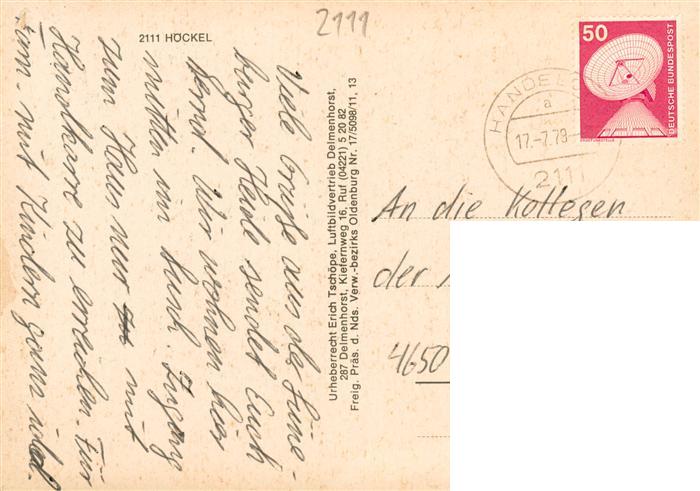 2111
2111 HÖCKEL
Viele Grüße aus der Lüne-
burger Heide sendet Euch
Bernd. Wir wohnen hier
mitten im Busch. Zugang
zum Haus nur mit
Handkarre zu erreichen. Für
uns mit Kindern ganz ideal.
Urheberrecht Erich Tschöpe, Luftbildvertrieb Delmenhorst,
287 Delmenhorst, Kiefernweg 16, Ruf (04221) 5 20 82
Freig. Präs. d. Nds. Verw.-bezirks Oldenburg Nr. 17/5098/11, 13
50
DEUTSCHE BUNDESPOST
HANDEL
a
17.-7.79
2111
An die Kollegen
der
4650